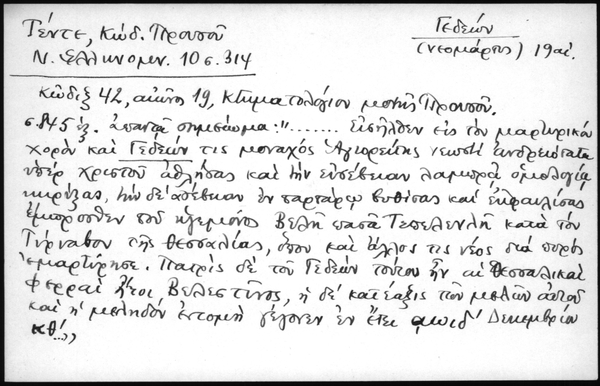 Τέντε, Κώδ. Προυσοῦ
Ν. Ἑλληνομν. 10 σ. 314
Γεδεών
(νεομάρτυς) 19 αἰ.
Κῶδιξ 42, αἰῶνος 19, Κτηματολόγιον μονῆς Προυσοῦ.
σ. 145 ἑξ. ἀπαντᾷ σημείωμα: "....... Εἰσῆλθεν εἰς τὸν μαρτυρικὸν
χορὸν καὶ Γεδεών τις μοναχὸς Ἁγιορείτης ἀνδρειότατα
ὑπὲρ Χριστοῦ ἀθλήσας καὶ τὴν εὐσέβειαν λαμπρᾷ ὁμολογίᾳ
κηρύξας, τὴν δὲ ἀσέβειαν ἐν ταρτάρῳ βυθίσας καὶ
ἔμπροσθεν τοῦ ἡγεμόνος Βελῆ πασᾶ Τεπελενλῆ κατὰ τὸν
Τύρναβον τῆς Θεσσαλίας, ὅπου καὶ ἄλλος τις νέος διὰ πυρὸς
ἐμαρτύρησε. Πατρὶς δὲ τοῦ Γεδεὼν τούτου ἦν αἱ Θεσσαλικαὶ
Φερραὶ ἤτοι Βελεστῖνος, ἡ δὲ κατέαξις τῶν μελῶν αὐτοῦ
καὶ ἡ μεληδὸν ἐντομὴ γέγονεν ἐν ἔτει αωιδ' Δεκεμβρίου
κθ'...,